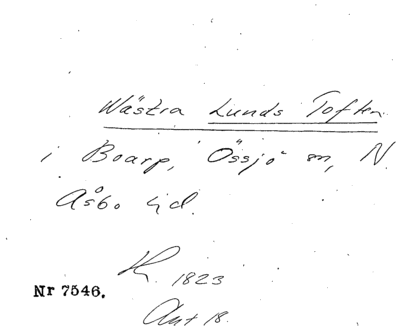 Wästra Lunds Toften
i Boarp, Össjö sn, N.
Åsbo hd.
K. 1823
Nr 7546.
Ant 18.